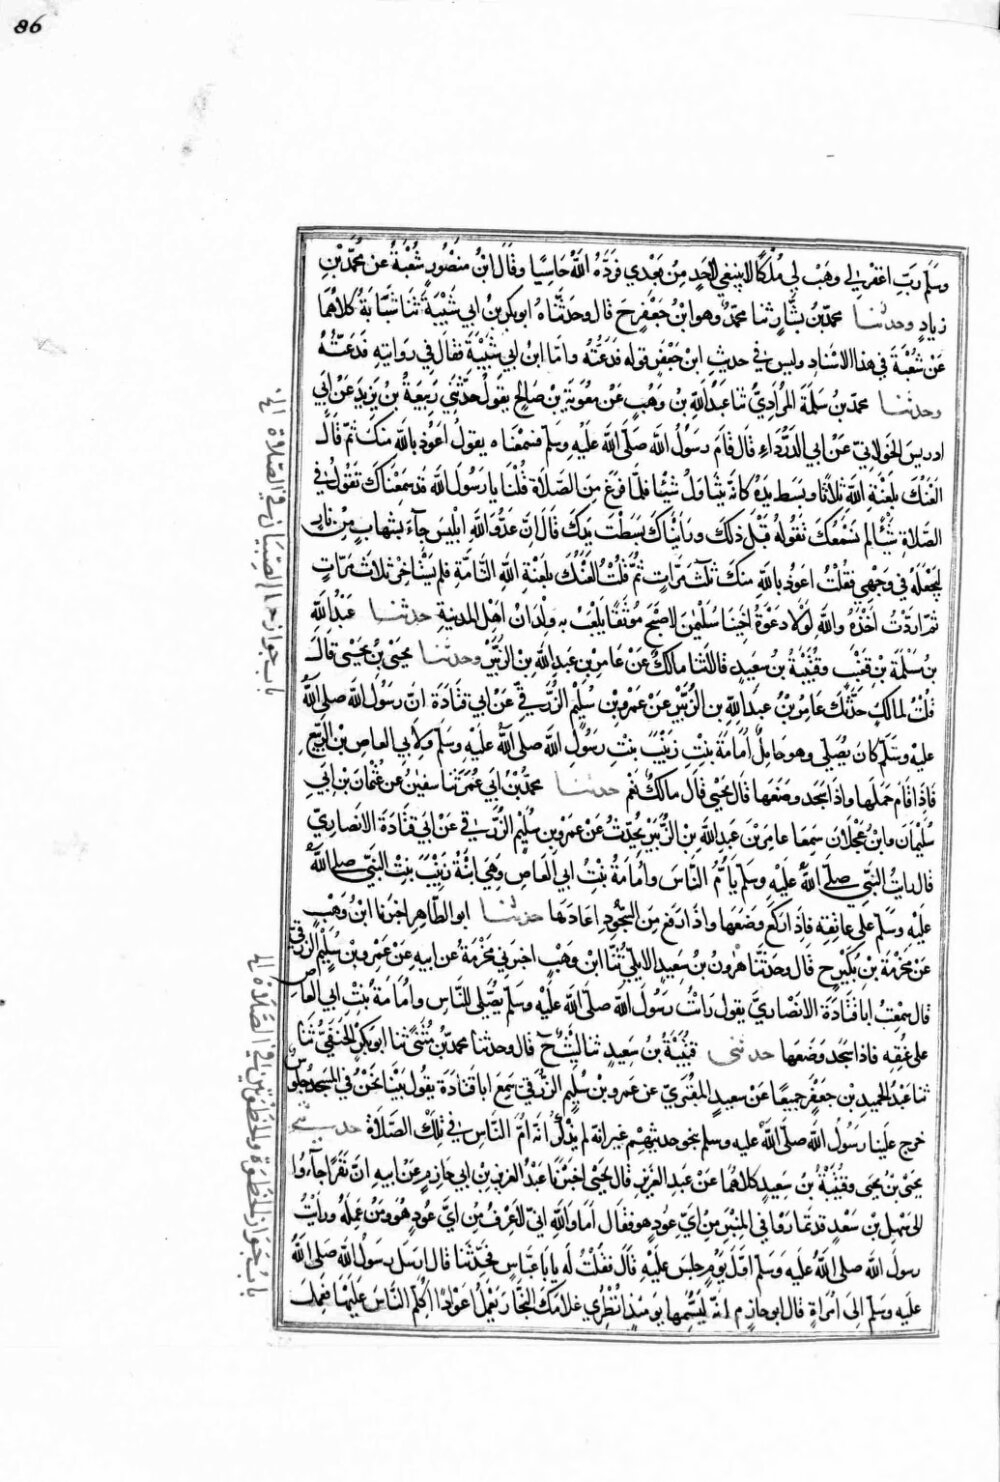 86
وسلم رب اغفر لي وهب لي ملكا لا ينبغي لاحد من بعدي فرده الله خاسيا وقال ابن منصور شعبة عن محمد بن
زياد وحدثنا محمد بن بشار ثنا محمد وهو ابن جعفر ح قال وحدثناه ابو بكر بن ابي شيبة ثنا شبابة كلاهما
عن شعبة في هذا الاسناد وليس في حديث ابن جعفر قوله فذعته واما ابن ابي شيبة فقال في روايته فدعته
وحدثنا محمد بن سلمة المرادي ثنا عبد الله بن وهب عن معوية بن صالح يقول حدثني ربيعة بن يزيد عن ابي
ادريس الخولاني عن ابي الدرداء قال قام رسول الله صلى الله عليه وسلم فسمعناه يقول اعوذ بالله منك ثم قال
العنك بلعنة الله ثلاثا وبسط يده كانه يتناول شيئا فلما فرغ من الصلاة قلنا يا رسول الله قد سمعناك تقول في
الصلاة شيئا لم نسمعك تقوله قبل ذلك ورايناك بسطت يدك قال ان عدو الله ابليس جآء بشهاب من نار
ليجعله في وجهي فقلت اعوذ بالله منك ثلث مرات ثم قلت العنك بلعنة الله التامة فلم يستاخر ثلاث مرات
ثم اردت اخذه والله لولا دعوة اخينا سليمن لاصبح موثقا يلعب به ولدان اهل المدينة حدثنا عبد الله
بن مسلمة بن قعنب وقتيبة بن سعيد قالا ثنا مالك عن عامر بن عبد الله بن الزبير وحدثنا يحيى بن يحيى قال
قلت لمالك حدثك عامر بن عبد الله بن الزبير عن عمرو بن سليم الزرقي عن ابي قتادة ان رسول الله صلى الله
عليه وسلم كان يصلي وهو حامل امامة بنت زينب بنت رسول الله صلى الله عليه وسلم ولابي العاص بن الربيع
فاذا قام حملها واذا سجد وضعها قال يحيى قال مالك نعم حدثنا محمد بن ابي عمر ثنا سفين عن عثمان بن ابي
سليمان وابن عجلان سمعا عامر بن عبد الله بن الزبير يحدث عن عمرو بن سليم الزرقي عن ابي قتادة الانصاري
قال رايت النبي صلى الله عليه وسلم يام الناس وامامة بنت ابي العاص وهي ابنة زينب بنت النبي صلى الله
عليه وسلم على عاتقه فاذا ركع وضعها واذا رفع من السجود اعادها حدثنا ابو الطاهر اخبرنا ابن وهب
عن مخرمة بن بكير ح قال وحدثنا هرون بن سعيد الايلي ثنا ابن وهب اخبرني مخرمة عن ابيه عن عمرو بن سليم الزرقي
قال سمعت ابا قتادة الانصاري يقول رايت رسول الله صلى الله عليه وسلم يصلي للناس وامامة بنت ابي العاص
على عنقه فاذا سجد وضعها حدثني قتيبة بن سعيد ثنا ليث ح قال وحدثنا محمد بن مثنى ثنا ابو بكر الحنفي ثنا
ثنا عبد الحميد بن جعفر جميعا عن سعيد المقبري عن عمرو بن سليم الزرقي سمع ابا قتادة يقول بينا نحن في المسجد جلوس
خرج علينا رسول الله صلى الله عليه وسلم بنحو حديثهم غير انه لم يذكر انه ام الناس في تلك الصلاة حدثني
يحيى بن يحيى وقتيبة بن سعيد كلاهما عن عبد العزيز قال يحيى اخبرنا عبد العزيز بن ابي حازم عن ابيه ان نفرا جآءوا
الى سهل بن سعد قد تماروا في المنبر من اي عود هو فقال اما والله اني لاعرف من اي عود هو ومن عمله ورايت
رسول الله صلى الله عليه وسلم اول يوم جلس عليه قال فقلت له يا با عباس فحدثنا قال ارسل رسول الله صلى الله
عليه وسلم الى امراة قال ابو حازم انه ليسمها يومئذ انظري غلامك النجار يعمل اعوادا اكلم الناس عليها فعمل
باب جواز حمل الصبيان في الصلاة الخ
باب جواز الخطوة والخطوتين في الصلاة الخ